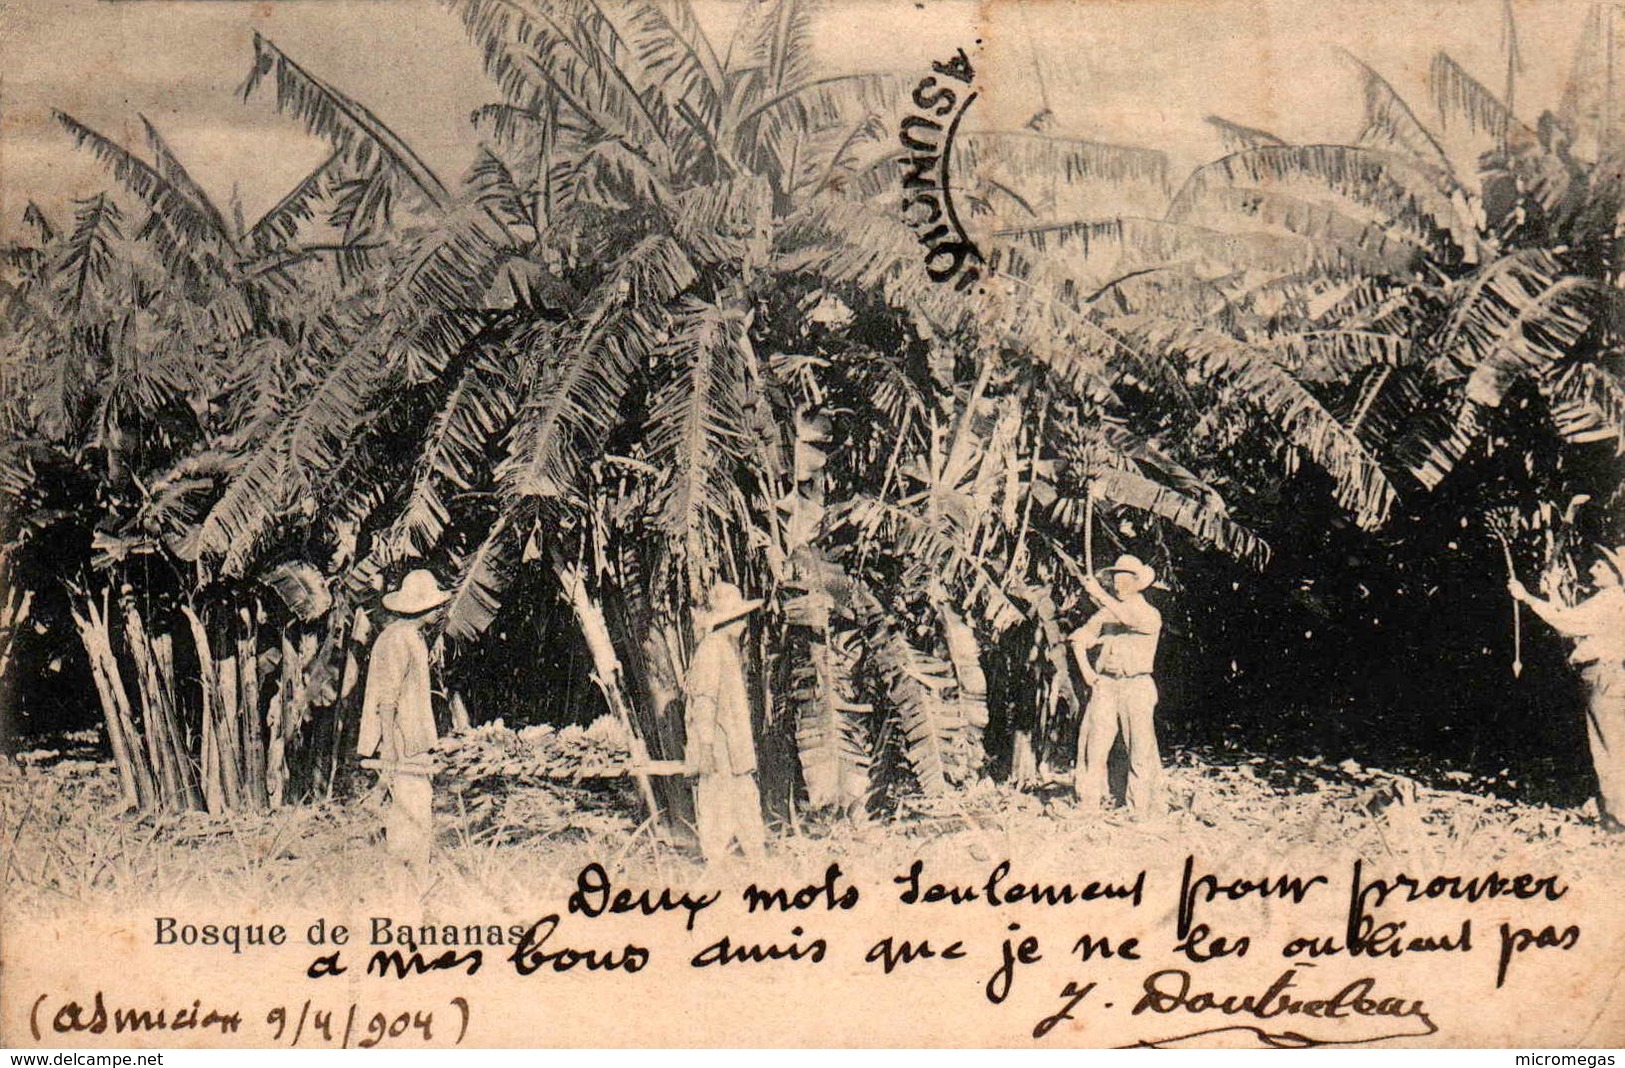 ASUNCION
Bosque de Bananas
Deux mots seulement pour prouver
a mes bons amis que je ne les oublient pas
J. Doutreleau
(Asuncion 9/4/904)
www.delcampe.net
micromegas